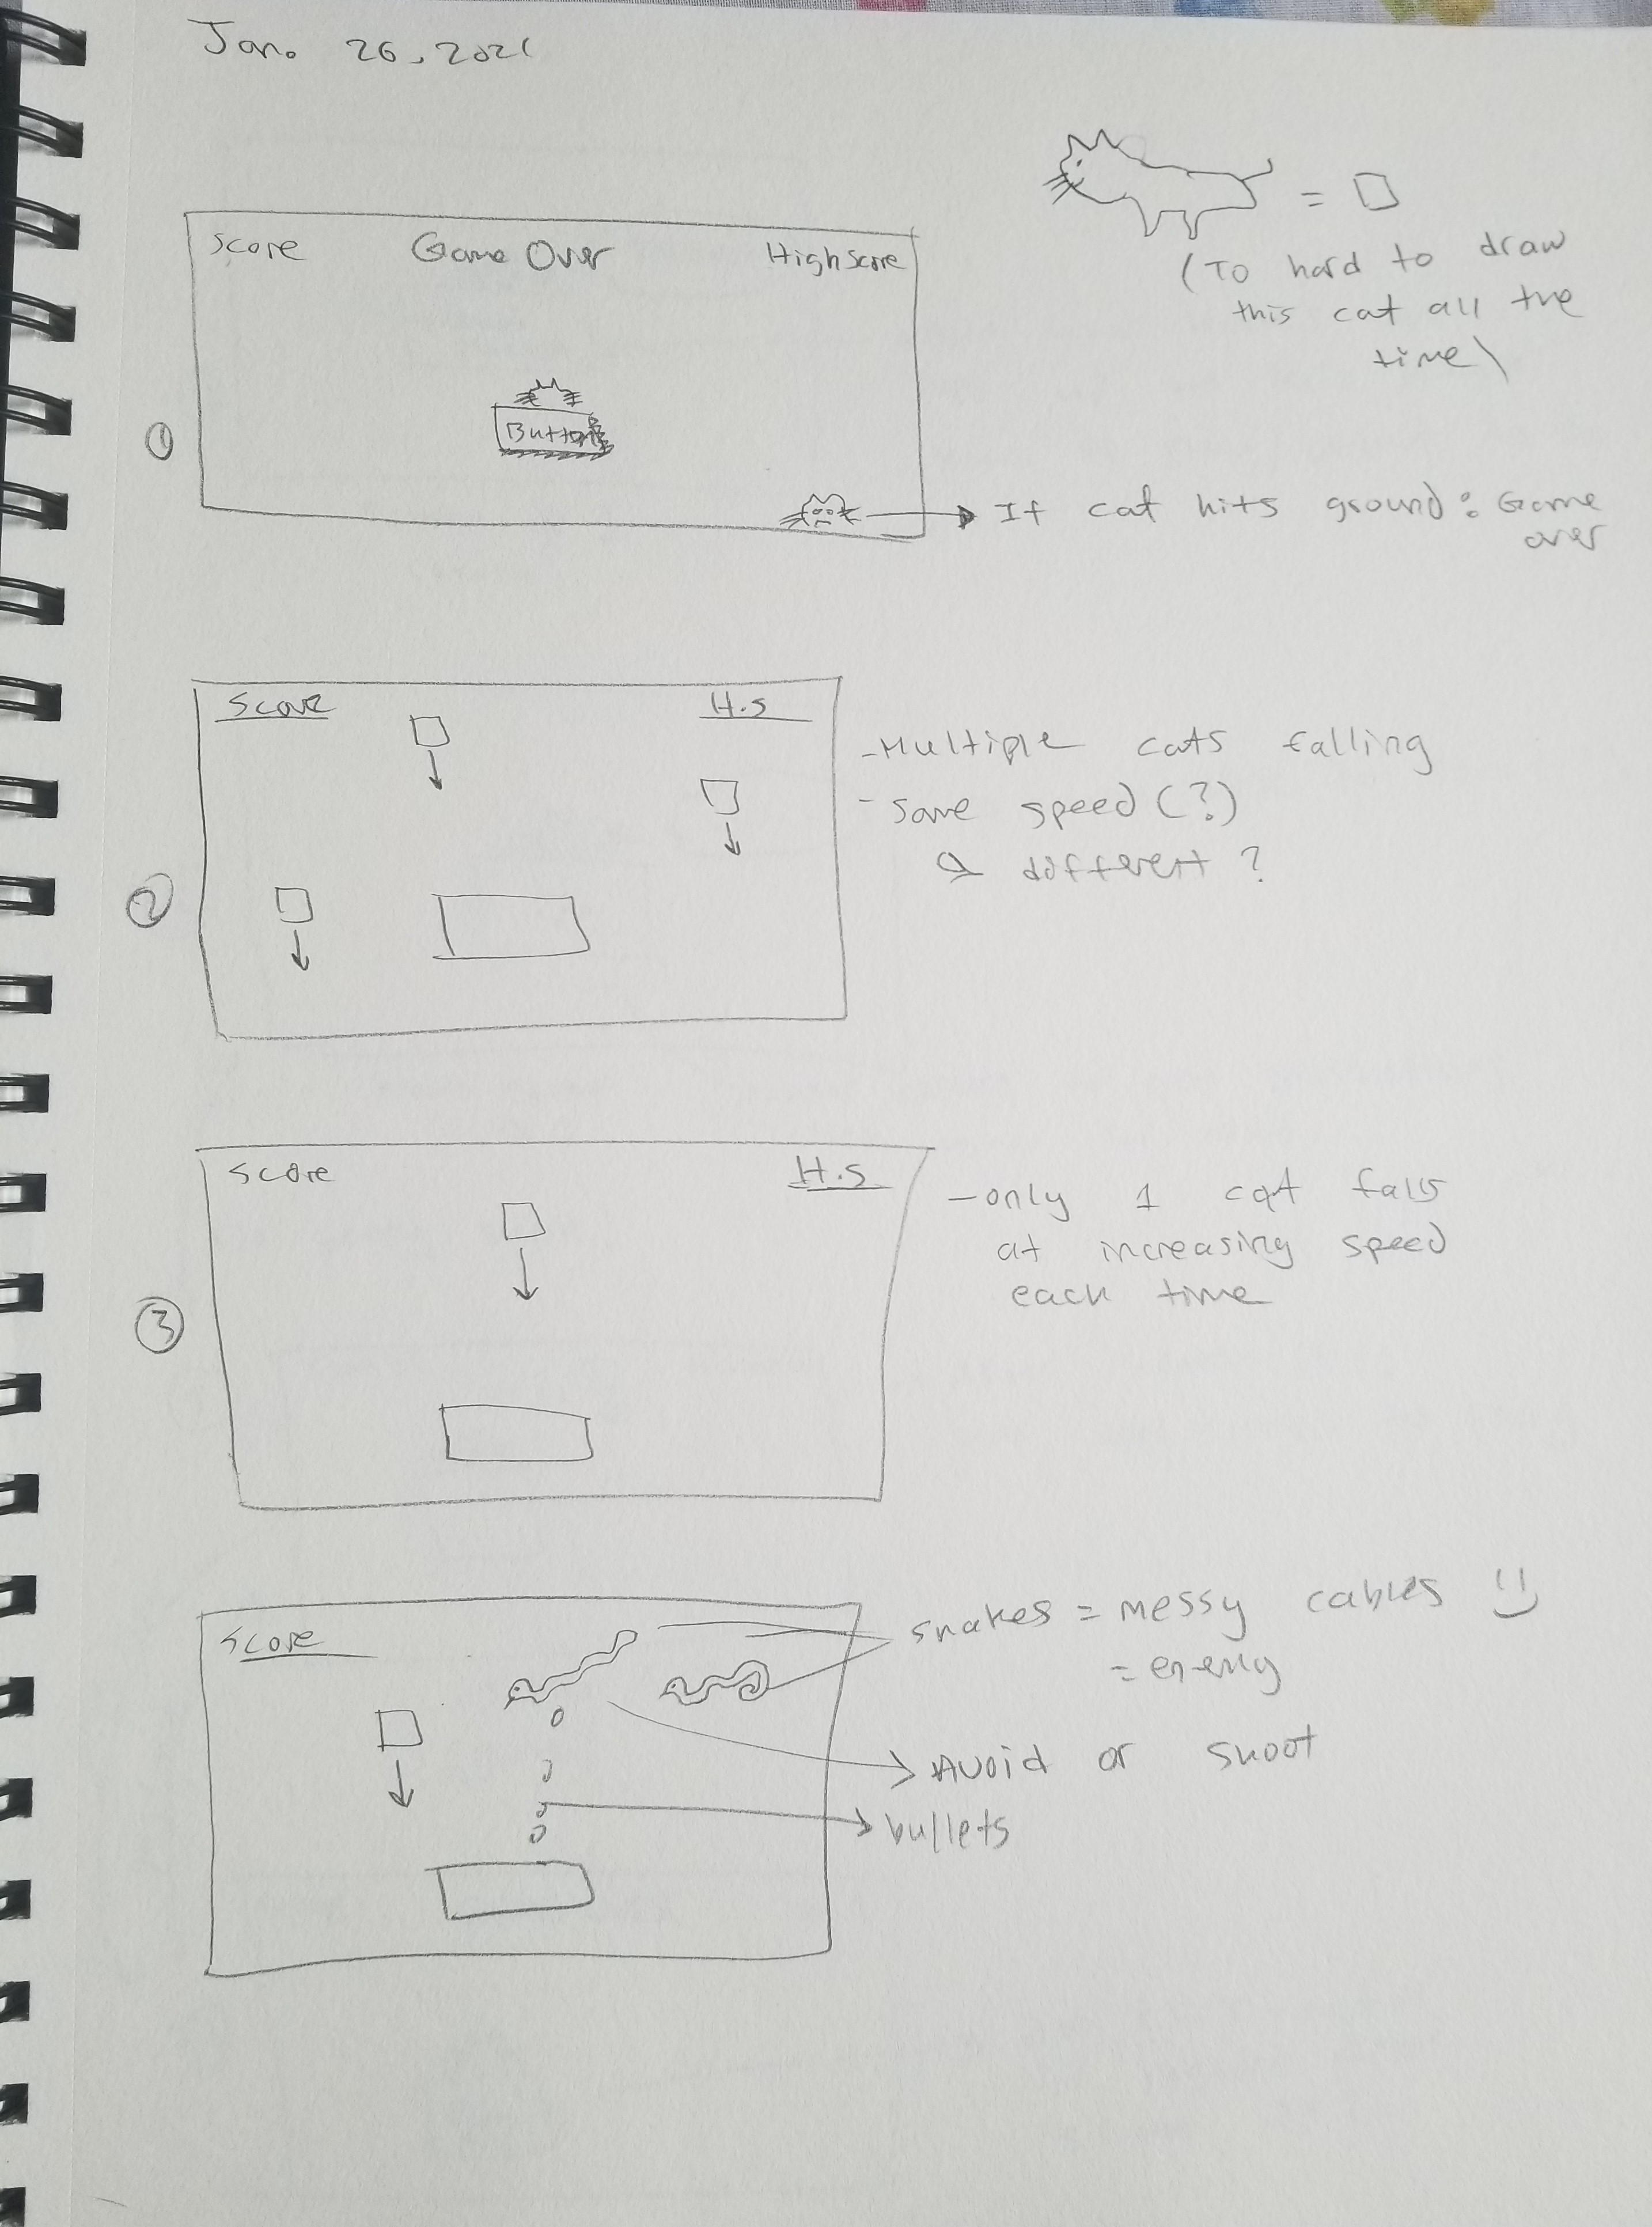 Jan. 26, 2021
= □
(To hard to draw
this cat all the
time)
Score Game Over High Score
Button
①
If cat hits ground: Game
over
Score H.S
- Multiple cats falling
- Same speed (?)
different ?
②
Score H.S
- only 1 cat falls
at increasing speed
each time
③
Score
snakes = messy cables
= enemy
Avoid or shoot
bullets